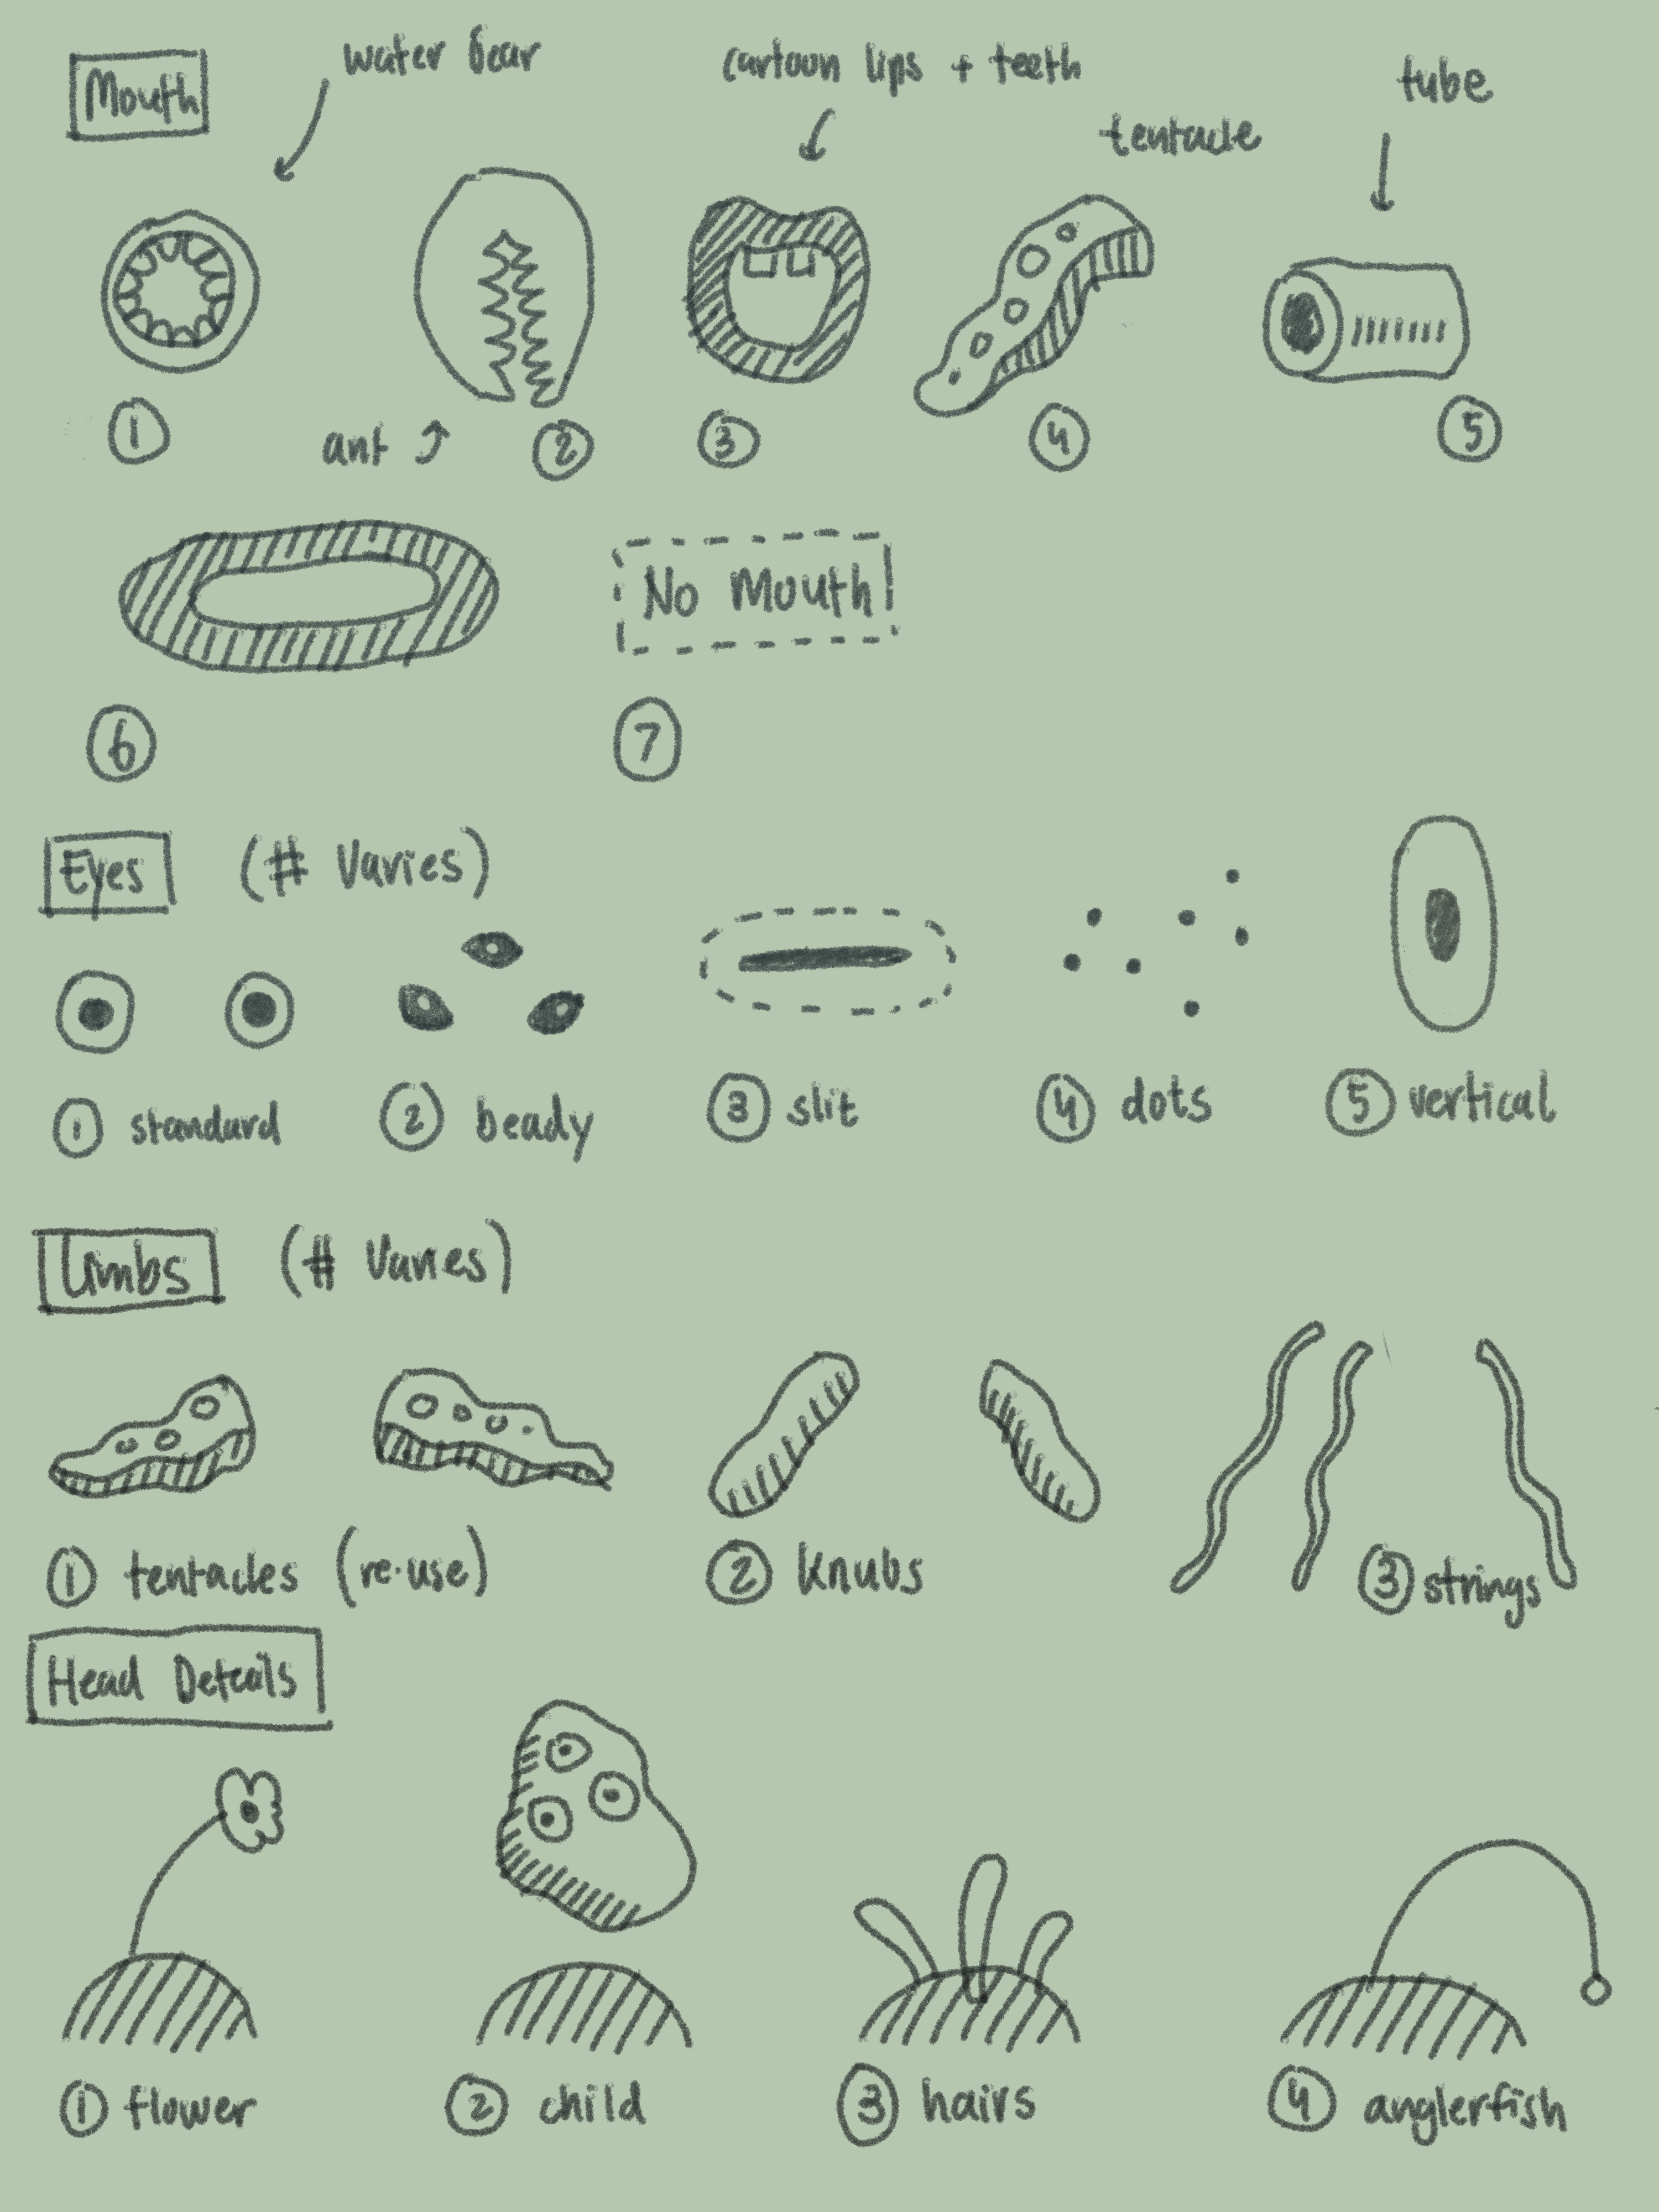 Mouth
water bear
cartoon lips + teeth
tentacle
tube
1
ant
2
3
4
5
No Mouth
6
7
Eyes (# Varies)
1 standard
2 beady
3 slit
4 dots
5 vertical
Limbs (# Varies)
1 tentacles (re-use)
2 knubs
3 strings
Head Details
1 flower
2 child
3 hairs
4 anglerfish